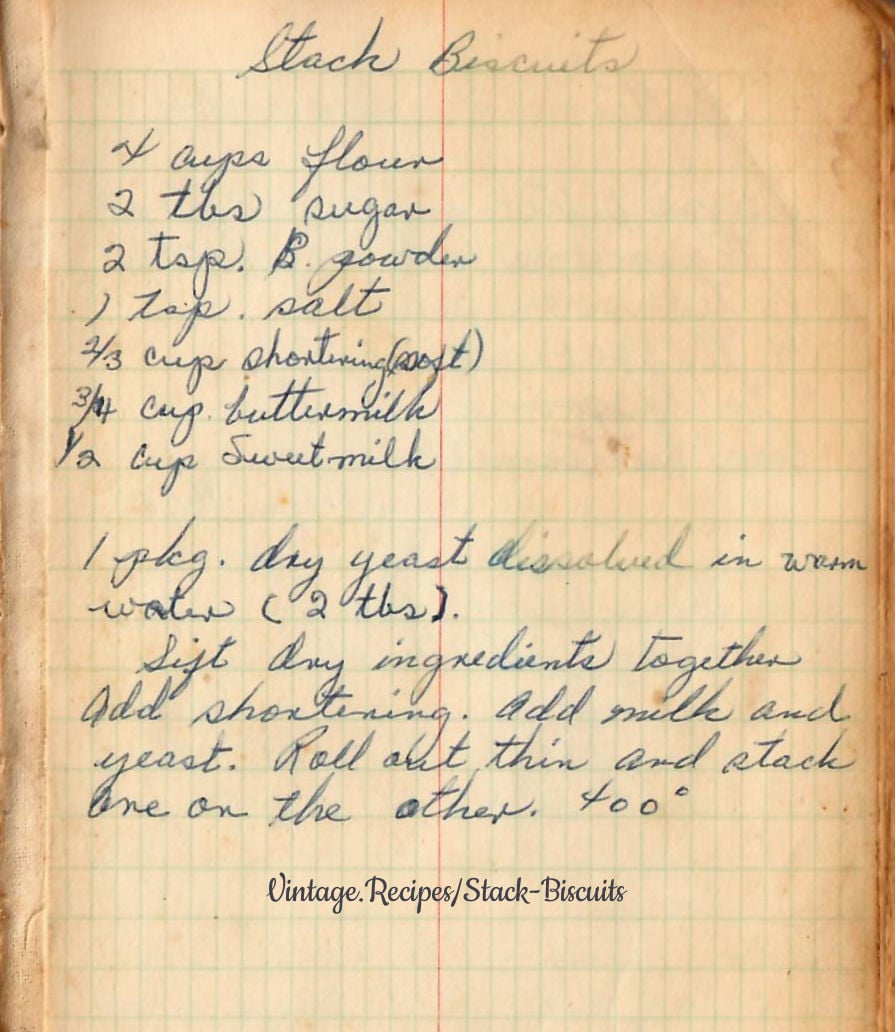 Stack Biscuits
4 cups flour
2 tbs sugar
2 tsp. B. powder
1 tsp. salt
2/3 cup shortening (soft)
3/4 cup buttermilk
1/2 cup Sweetmilk
1 pkg. dry yeast dissolved in warm
water (2 tbs).
Sift dry ingredients together
Add shortening. Add milk and
yeast. Roll out thin and stack
one on the other. 400°
Vintage.Recipes/Stack-Biscuits